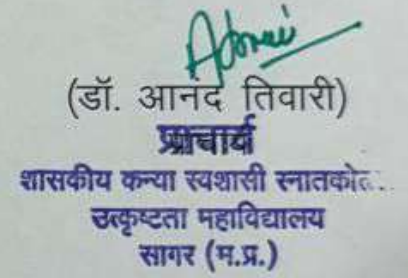 (डॉ. आनंद तिवारी)
प्राचार्य
शासकीय कन्या स्वशासी
उत्कृष्टता महाविद्यालय
सागर (म.प्र.)